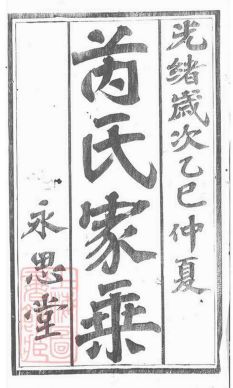 光緒歲次乙巳仲夏
芮氏家乘
永思堂